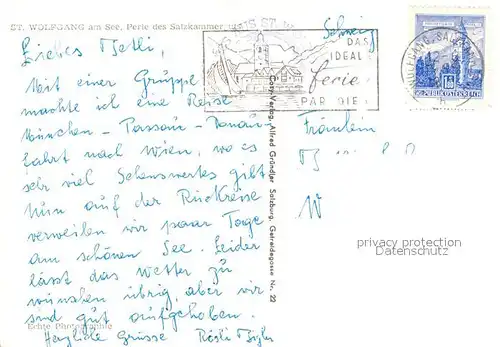 ST. WOLFGANG am See, Perle des Salzkammergutes
Schweiz
Liebes
Mit einer Gruppe
machte ich eine Reise
München - Passau - Donau-
fahrt nach Wien, wo es
sehr viel Sehenswertes gibt
Nun auf der Rückreise
verweilen wir paar Tage
am schönen See. Leider
lässt das Wetter zu
wünschen übrig, aber wir
sind gut aufgehoben.
Echte Photographie
Herzliche Grüsse Rösli
DAS
IDEAL
ferie
PARADIE
Cosy-Verlag, Alfred Gründler, Salzburg, Getreidegasse Nr. 22
REPUBLIK ÖSTERREICH
Fräulein
privacy protection
Datenschutz